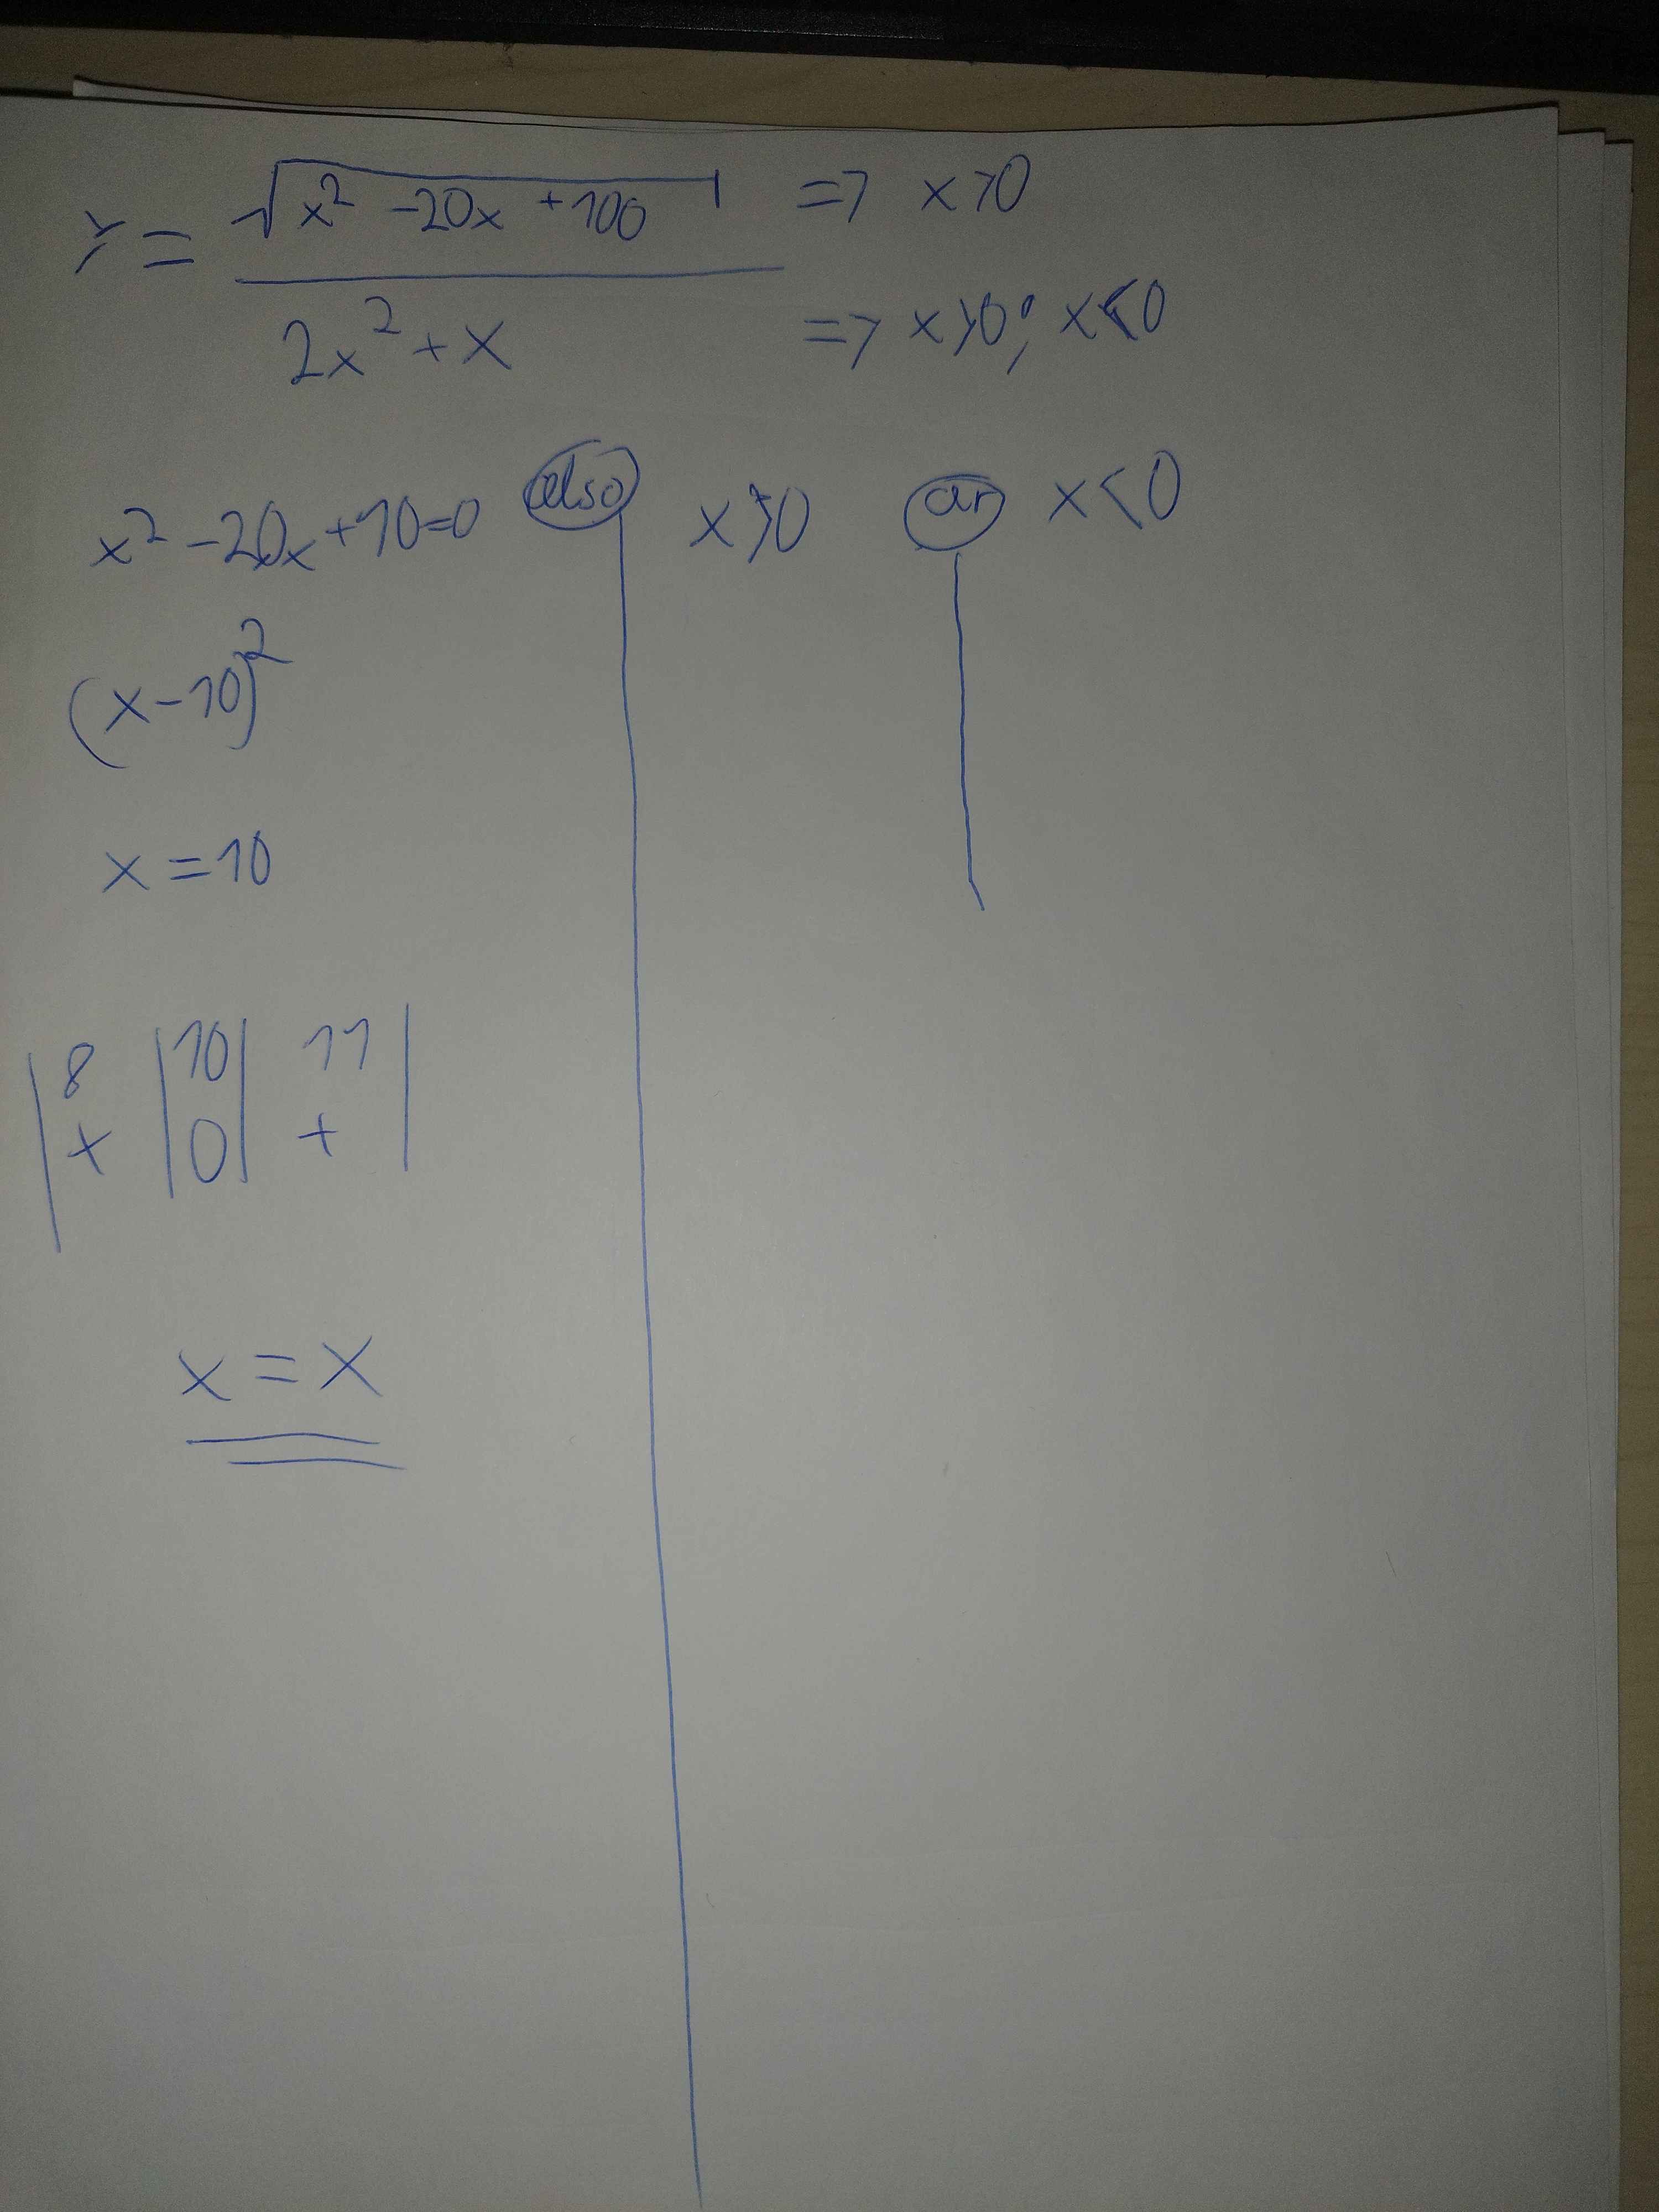 y = √(x² -20x +100) => x>0
2x² + x => x>0; x<0
x² -20x +10=0 also x>0 or x<0
(x-10)²
x = 10
| 8 | 10 | 11 |
| + | 0 | + |
x = x